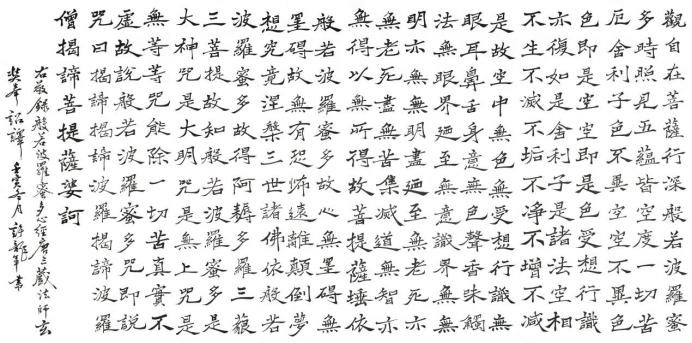 觀自在菩薩行深般若波羅蜜
多時照見五蘊皆空度一切苦
厄舍利子色不異空空不異色
色即是空空即是色受想行識
亦復如是舍利子是諸法空相
不生不滅不垢不淨不增不減
是故空中無色無受想行識無
眼耳鼻舌身意無色聲香味觸
法無眼界廼至無意識界無無
明亦無無明盡廼至無老死亦
無老死盡無苦集滅道無智亦
無得以無所得故菩提薩埵依
般若波羅蜜多故心無罣礙無
罣礙故無有恐怖遠離顛倒夢
想究竟涅槃三世諸佛依般若
波羅蜜多故得阿耨多羅三藐
三菩提故知般若波羅蜜多是
大神咒是大明咒是無上咒是
無等等咒能除一切苦真實不
虛故說般若波羅蜜多咒即說
咒曰揭諦揭諦波羅揭諦波羅
僧揭諦菩提薩婆訶
右敬錄般若波羅蜜多心經唐三藏法師玄
奘奉詔譯 月 許龍年書